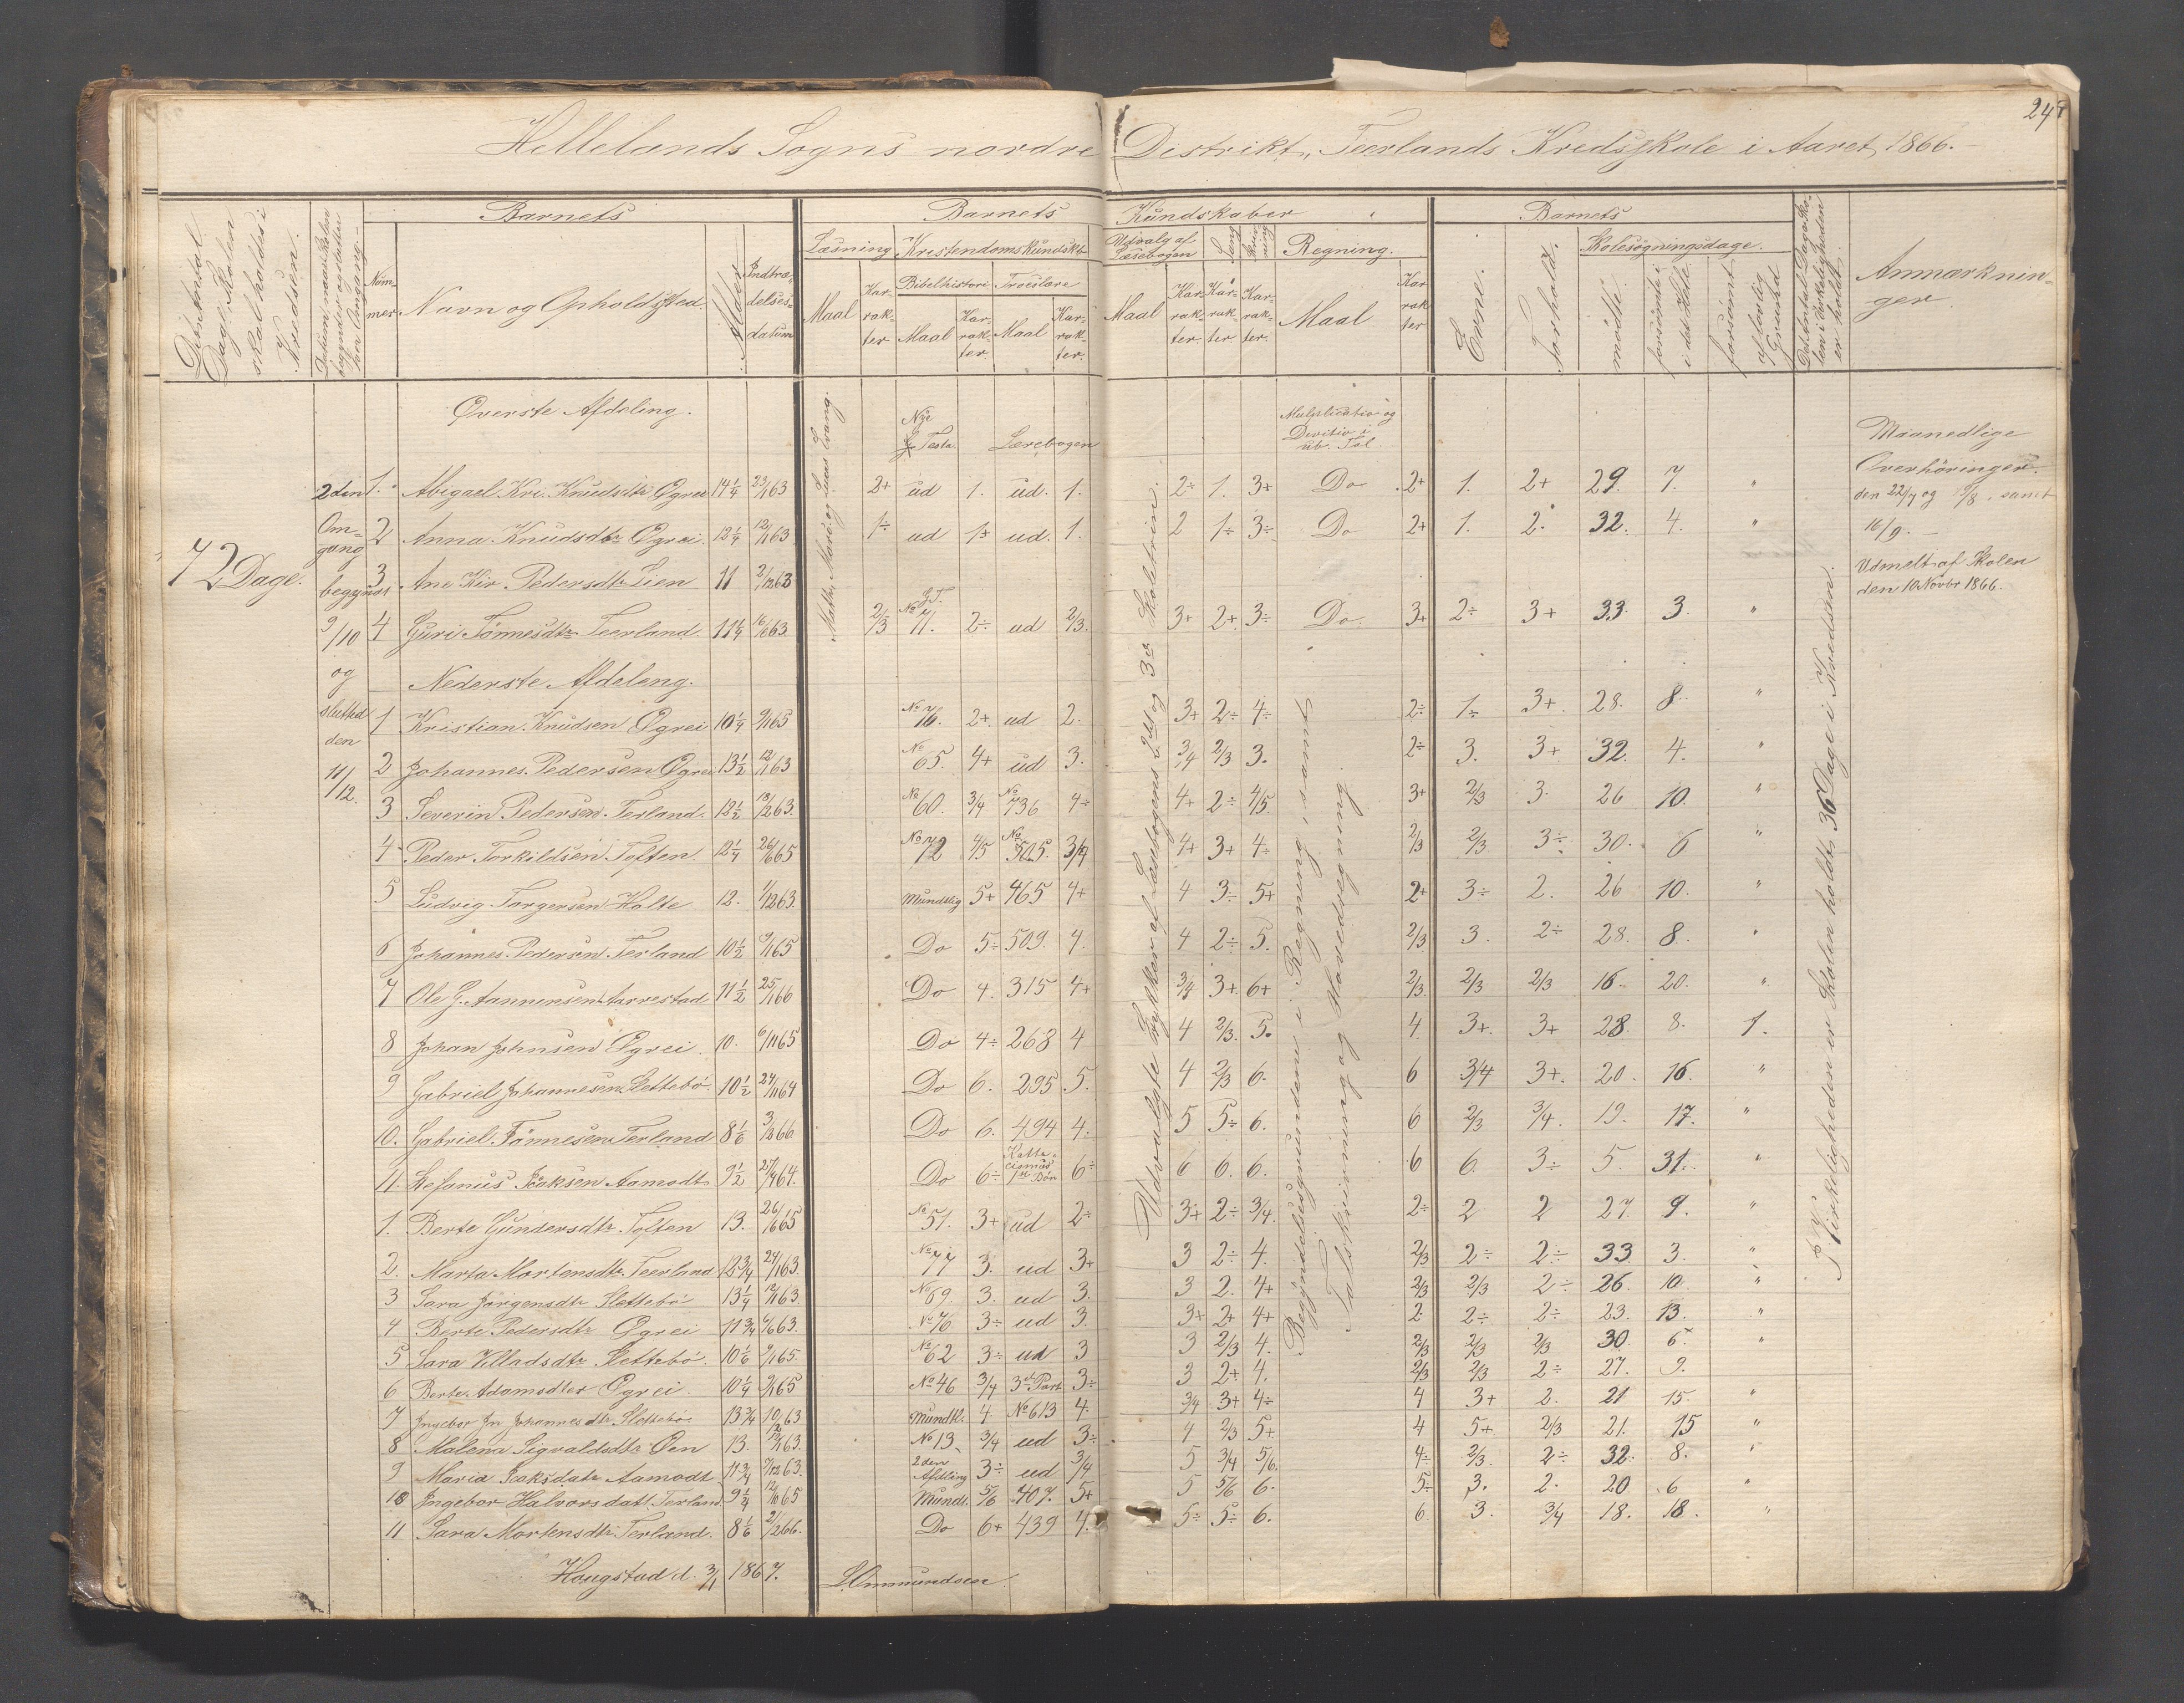 248
Hellelands Sogns nordre Destrikt, Teerlands Kredsskole i Aaret 1866.
Det Antal Dage, Skolen skal holdes i Kredsen.
Datum, naar Skolen begynder og slutter hver Omgang
Barnets
Nummer
Navn og Opholdssted
Alder
Indtrædelsesdatum
Barnets Kundskaber
Læsning
Kristendomskundsk.
Udvalg af Læsebogen
Sang
Skrivning
Regning.
Bibelhistorie
Troeslære
Maal
Karrakter
Maal
Karrakter.
Maal
Karrakter.
Maal
Karrakter.
Karrakter
Karrakter.
Maal
Karrakter
Barnets
Evne.
Forhold.
Skolesøgningsdage.
mødte.
forsømte i det Hele.
forsømt af lovlig Grund
Det Antal Dage Skolen i Virkeligheden er holdt.
Anmærkninger
Øverste Afdeling.
Math., Mark. og Lucas Evang.
Nye Testa.
Lærebogen
Multplicatio og Devitio i ub. Tal
72 Dage.
2den Omgang begyndt 9/10 og slutted den 11/12.
1. Abigael Kri. Knudsdtr Øgrei 14 1/4 23/1 63 2+ ud 1. ud. 1. 2÷ 1. 3+ Do 2+ 1. 2+ 29. 7. "
2 Anna Knudsdtr Øgrei. 12 1/4 12/1 63 1÷ ud 1÷ ud. 1. 2 1÷ 3÷ Do 2+ 1. 2. 32. 4. "
3 Ane Kir. Pedersdtr Lien 11 2/12 63
4 Guri Tönnesdtr Teerland. 11 1/4 16/6 63. 2/3 G.T. No 71. 2÷ ud 2/3. 3+ 2+ 3÷ Do. 3+ 2÷ 3+ 33. 3. "
Nederste Afdeleng.
1 Kristian Knudsen Øgrei 10 1/4 9/1 65 No 76. 2+ ud 2. 3+ 2÷ 4÷ 2÷ 1÷ 3+. 28. 8. "
2 Johannes Pedersen Øgrei 13 1/2 12/1 63 No 65. 4+ ud 3. 3/4 2/3 3. 2÷ 3. 3+ 32. 4. "
3 Severin Pedersen Terland. 12 1/2 18/12 63. No 60. 3/4 No 736 4÷ 4+ 2÷ 4/5 3+ 2/3 3. 26 10. "
4 Peder Torkildsen Toften 12 1/4 26/6 65 No 72 4/5 No 505. 3/4 4+ 3+ 4÷ 2/3 2/3 3÷ 30. 6 "
5 Ludvig Torgersen Holte 12. 1/12 63. Mundtlig 5+ 465 4+ 4 3÷ 5+ 2+ 3÷ 2. 26 10. "
6 Johannes Pedersen Terland 10 1/2 9/1 65 Do 5÷ 509. 4. 4 2÷ 5. 2/3 3. 2÷ 28. 8. "
7 Ole G. Aanunsen Aarrestad 11 1/2 25/1 66 Do 4. 315 4+ 3/4 3+ 6+ 2/3. 2/3 2/3 16. 20. "
8 Johan Johnsen Øgrei 10. 6/11 65 Do 4÷ 268 4 4 2/3. 5. 4. 3+. 3+ 28. 8. 1.
9 Gabriel Johannesen Slettebö 10 1/2 24/11 64 Do 6. 295 5. 4 2/3 6. 6 3/4 3+. 20. 16. "
10. Gabriel Tönnesen Terland 8 1/6 3/12 66 Do 6. 494 4. 5 5÷ 6. 6 2/3 3/4. 19. 17. "
11. Stefanus Isaksen Aamodt 9 1/2 27/4 64. Do 6÷ Kattecismus 1ste Bön 6÷ 6 6. 6. 6 6. 3÷ 5. 31. "
1. Berte Gundersdtr Toften 13. 26/6 65 No 51. 3+ ud 2÷ 3+ 2÷ 3/4. 2÷ 2 2 27. 9. "
2. Marta Mortensdtr Teerland 12 3/4 24/1 63. No 77 3. ud 3+ 3 2÷ 4. 2/3 2÷ 2÷ 33. 3. "
3 Sara Jörgensdtr Slettebö 13 1/4 12/1 63. No 69. 3. ud 3. 3 2. 4+ 2/3 2/3 2÷ 26. 10. "
4 Berte Pedersdtr Øgrei 11 3/4 6/6 63. No 76 3÷ ud 3. 3+ 2+ 4+ 2. 2÷ 2÷ 23. 13. "
5 Sara Villadsdtr Slettebö. 10 1/6 9/1 65. No 62 3÷ ud 3 3 2/3 4. 2/3 2/3 2/3 30. 6 "
6 Berte Adamsdtr Øgrei. 10 1/4 9/1 65 No 46 3/4 3de Part 3÷ 3 2+ 4. 2/3 2/3 2÷ 27. 9.
7 Ingebor Jn Johannesdtr Slettebö. 13 3/4 10/2 63 Mundtl. 4. No 613 4. 3/4 3+ 4÷ 4 3+ 2. 21 15. "
8 Malena Sigvaldsdtr Øen 13. 12/1 63. No 13. 3/4 ud 3÷ 4 2/3 5+ 4 5+ 2/3 21. 15 "
9 Maria Isaksdatr Aamodt 11 3/4 7/12 63. 2den Afdling 3÷ ud 3/4 5 3/4 5/6. 4÷ 2/3. 2÷ 32. 8. "
10 Ingebor Halvorsdatt. Terland. 9 1/4 12/10 65 Mundt. 5/6 407. 5+ 5 5/6 6. 5÷ 3. 2. 20 6 "
11 Sara Mortensdtr Terland. 8 1/6 21/2 66. Do 6+ 439 4. 5÷ 5÷ 6. 6 3. 3/4 18. 18. "
Udvalgte Stykker af Læsebogens 2det og 3die Skoletrin.
Begyndelsesgrundene i Regning, samt Talskrivning og Hovedregning.
I Virkeligheden er Skolen holdt 36 Dage i Kredsen.
Maanedlige Overhöringer.
den 22/7 og /8, samt
16/9.
Udmeldt af Skolen
den 10 Novbr 1866.
Hougstad d. 3/1 1867.
Ommundsen.